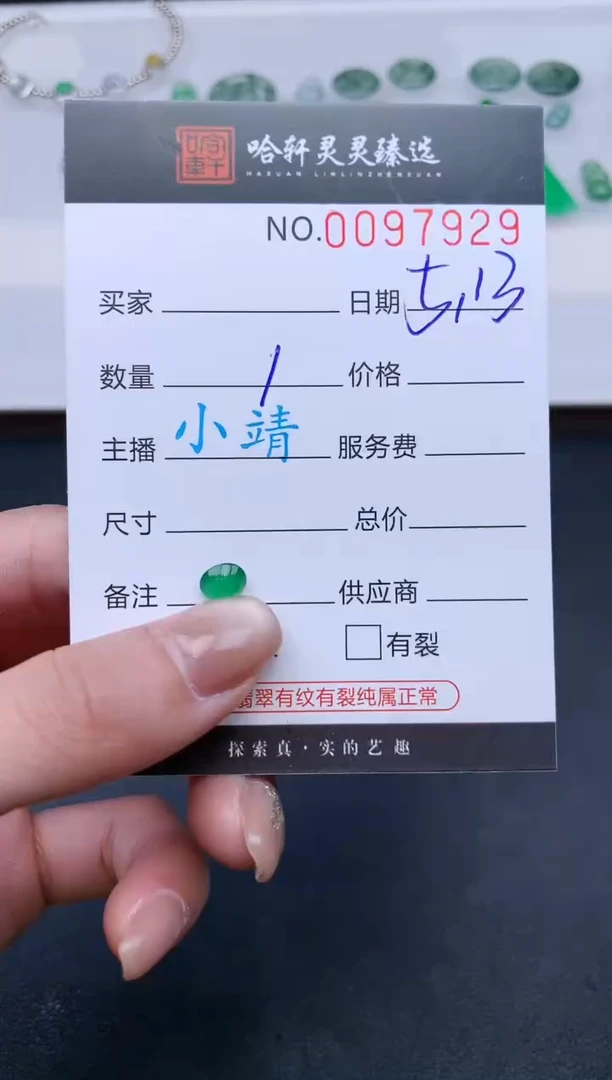 哈轩灵灵臻选
HAXUAN LINLINZHENXUAN
NO.0097929
买家 日期 5,13
数量 1 价格
主播 小靖 服务费
尺寸 总价
备注 供应商
有裂
翡翠有纹有裂纯属正常
探索真·实的艺趣